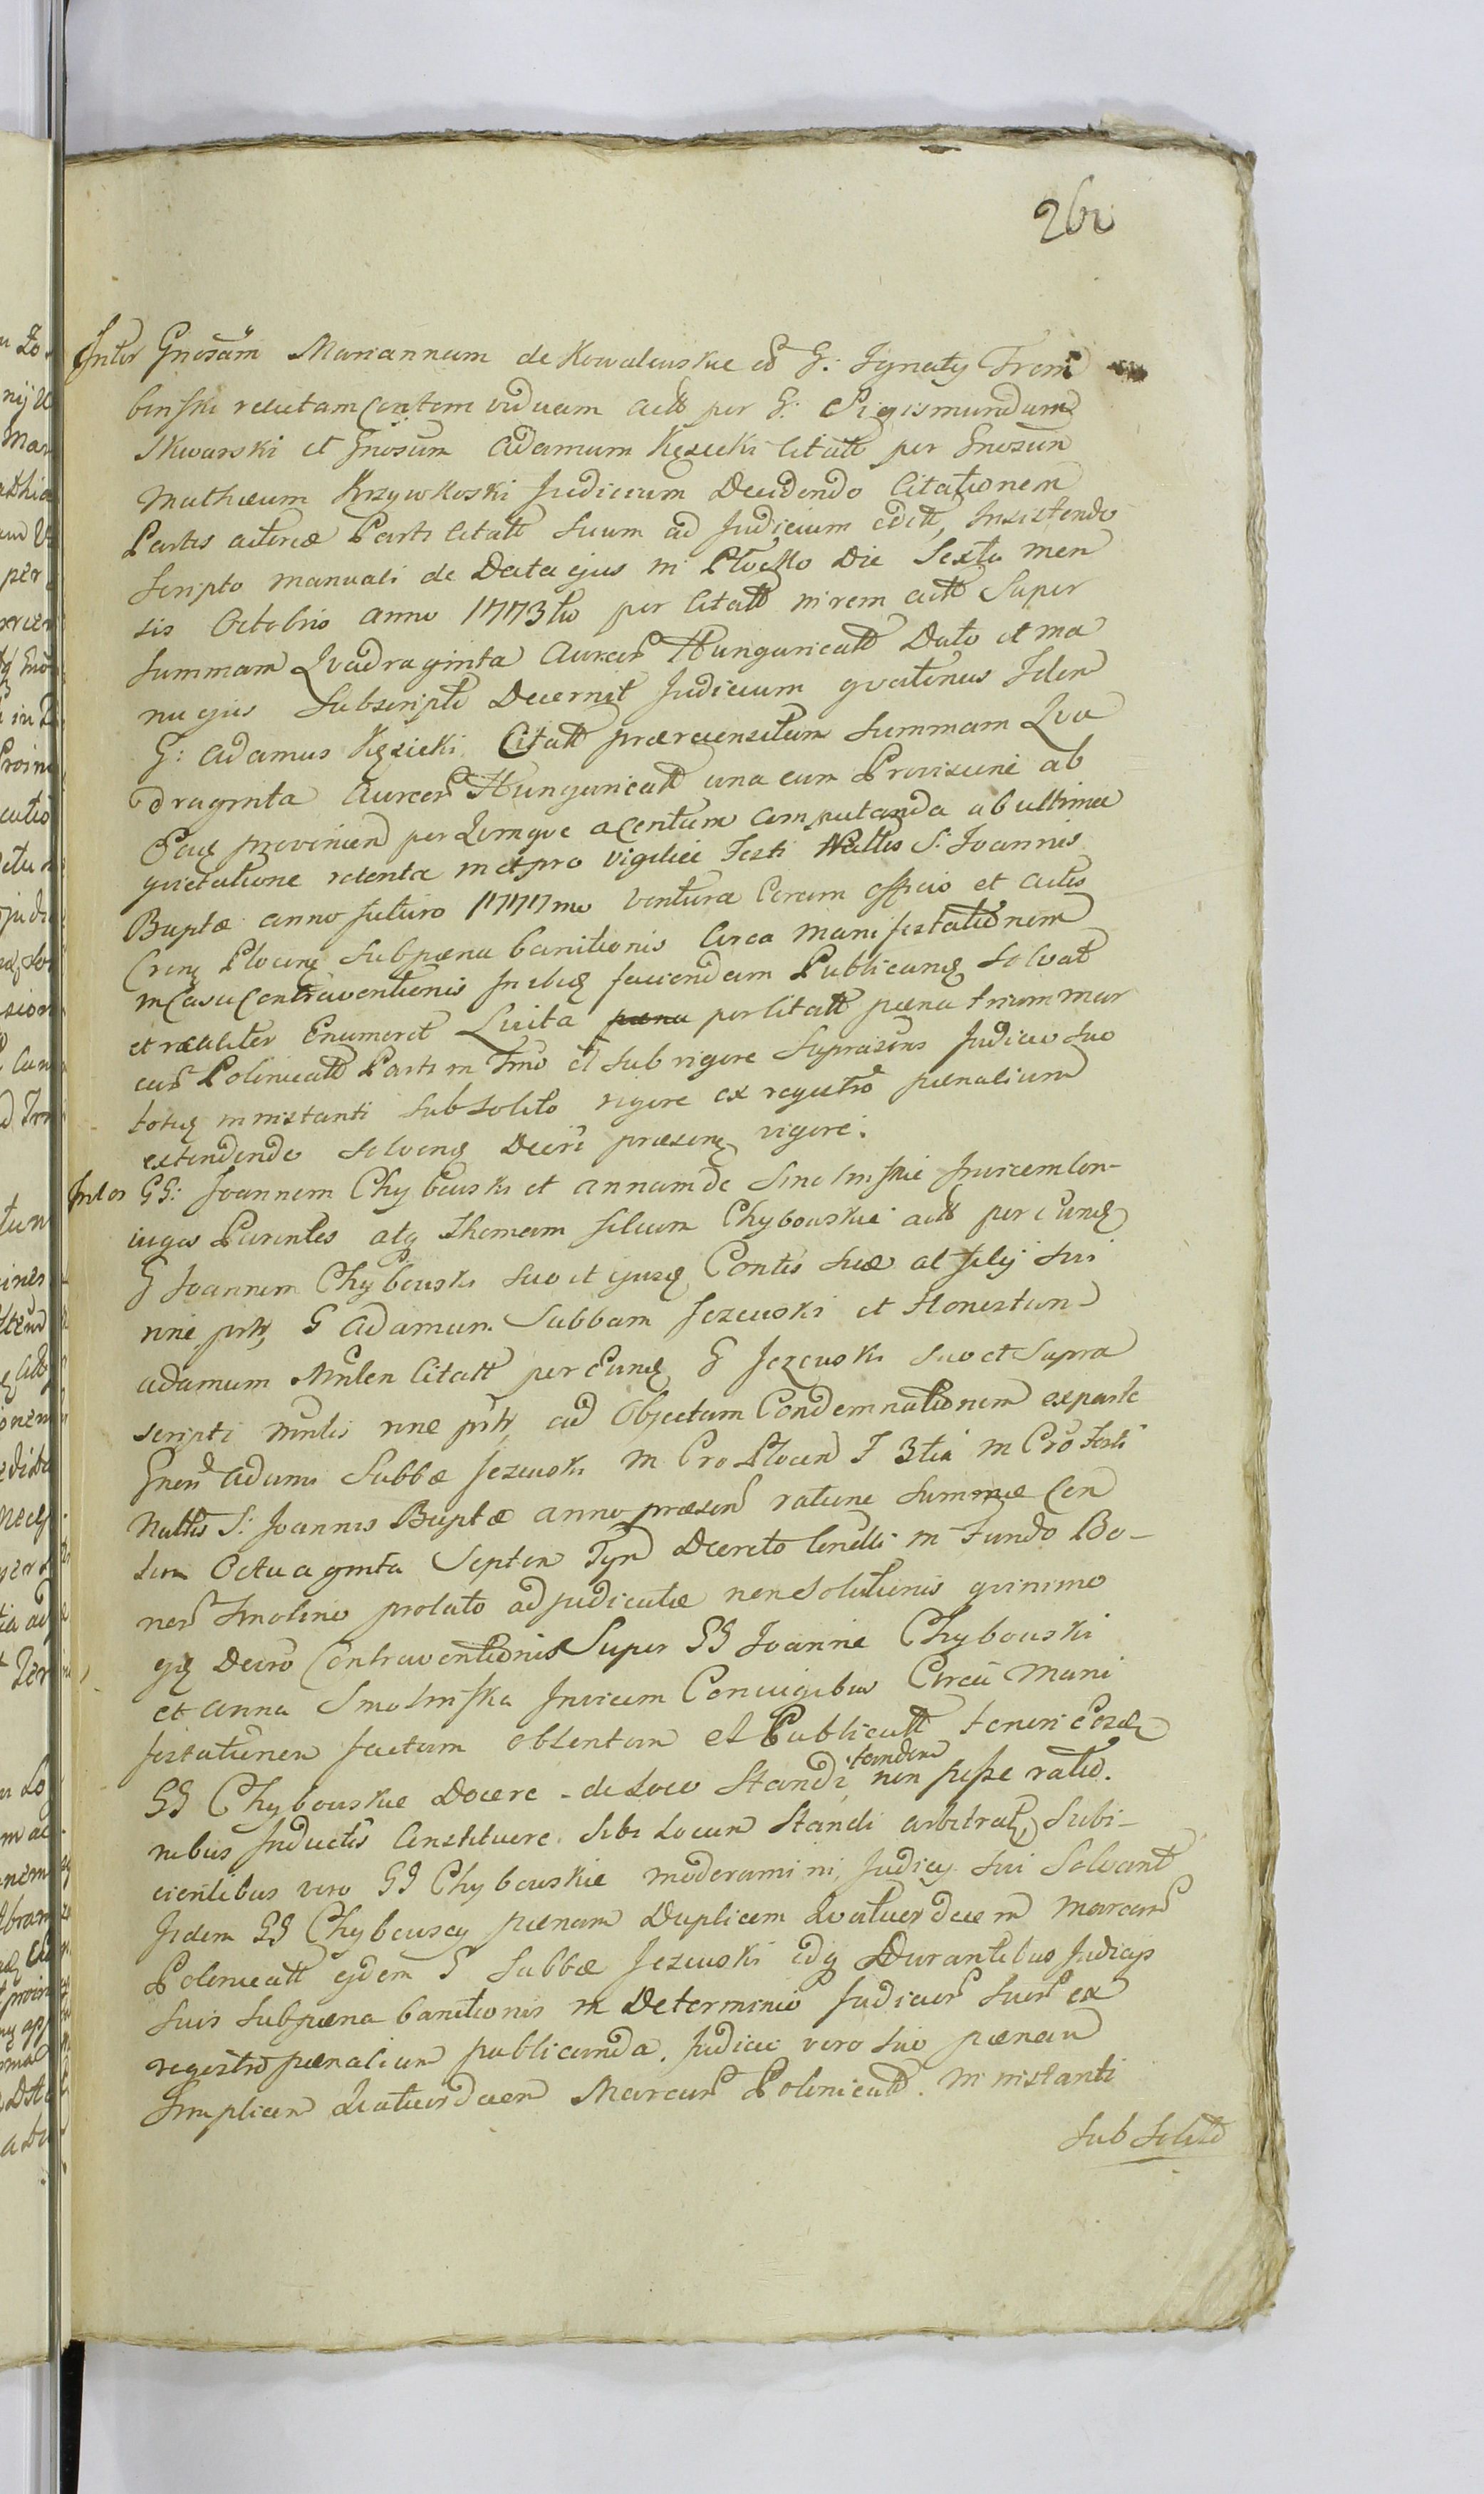 262
Inter Gnosam Mariannam de Kowalewskie co G: Ignatij Trem
binski relictam Contem viduam actt per G: Sigismundum
Skwarski et Gnosum Adamum Kęsicki Citatt per Gnosum
Mathæum Krzywkoski Judicium Decidendo Citationem
Partis actoreæ Parti Citatt suum ad Judicium editt, Insistendo
Scripto manuali de Data ejus in Płocko Die Sexta men
sis Octobris anno 1773tio per Citatt in rem actt Super
Summam Quadraginta Aureor Hungaricatt Dato et ma
nu ejus Subscripto Decernit Judicium quatenus Idem
G: Adamus Kęsicki Citatt præcensitam Summam Qua
draginta Aureor Hungaricatt una cum Provisione ab
Eaq provenien per quinque a Centum computanda ab ultima
quietatione retenta in et pro vigilia Festi Nattis S: Joannis
Baptæ anno futuro 1777mo ventura Coram officio et actis
Crens Plocens sub pæna banitionis Circa manifestationem
in Casu Contraventionis In ibiq faciendam Publicandq Solvat
et realiter Enumeret Luita pæna per Citatt pæna trium mar
car Polonicatt Parti in Tmo et sub rigore Suprasons Judicio suo
totiq in instanti sub solito rigore ex regestro pænalium
extendendo Solvenq Decri præsens vigore.
Inter GG: Joannem Chybowski et Annam de Smolinskie Invicem Con-
iuges Parentes atq Thomam filium Chybowskie actt per eundq
G Joannem Chybowski suo et ejusq Contis suæ al filij sui
nne prtt, G Adamum Subbam Jezewski et Honestum
Adamum Mulen Citatt per Eundq G Jezewski suo et supra
scripti Mulis nne prtt, ad Objectam Condemnationem ex parte
Gnosi Adami Subbæ Jezewski in Cro Plocen F 3tia in Cro Festi
Nattis S: Joannis Baptæ anno præsen ratione summæ Cen
tum Octuaginta Septem Tyn Decreto Condli in Fundo Bo-
nor Smolino prolato adjudicatæ non Solutionis quinimo
ejq Decro Contraventionis Super GG Joanne Chybowski
et Anna Smolinska Invicem Conjugibus Circa Mani
festationem factam obtentam et Publicatt teneri eosdq
GG Chybowskie Docere de Loco Standi, tandem non posse ratio.
nibus Inductis Constituere sibi Locum Standi arbitratt, Subi-
cientibus vero GG Chybowskie moderamini Judicij sui Solvant
Iidem GG Chybowscy pænam Duplicem Quatuordecem Marcar
Polonicatt ejdem G Subbæ Jezewski idq Durantibus Judicijs
suis sub pæna banitionis in Determinio Judicior suor ex
regestro pænalium publicanda. Judicio vero suo pænam
Simplicem Quatuordecem Marcar Polonicatt. in instanti
sub solito